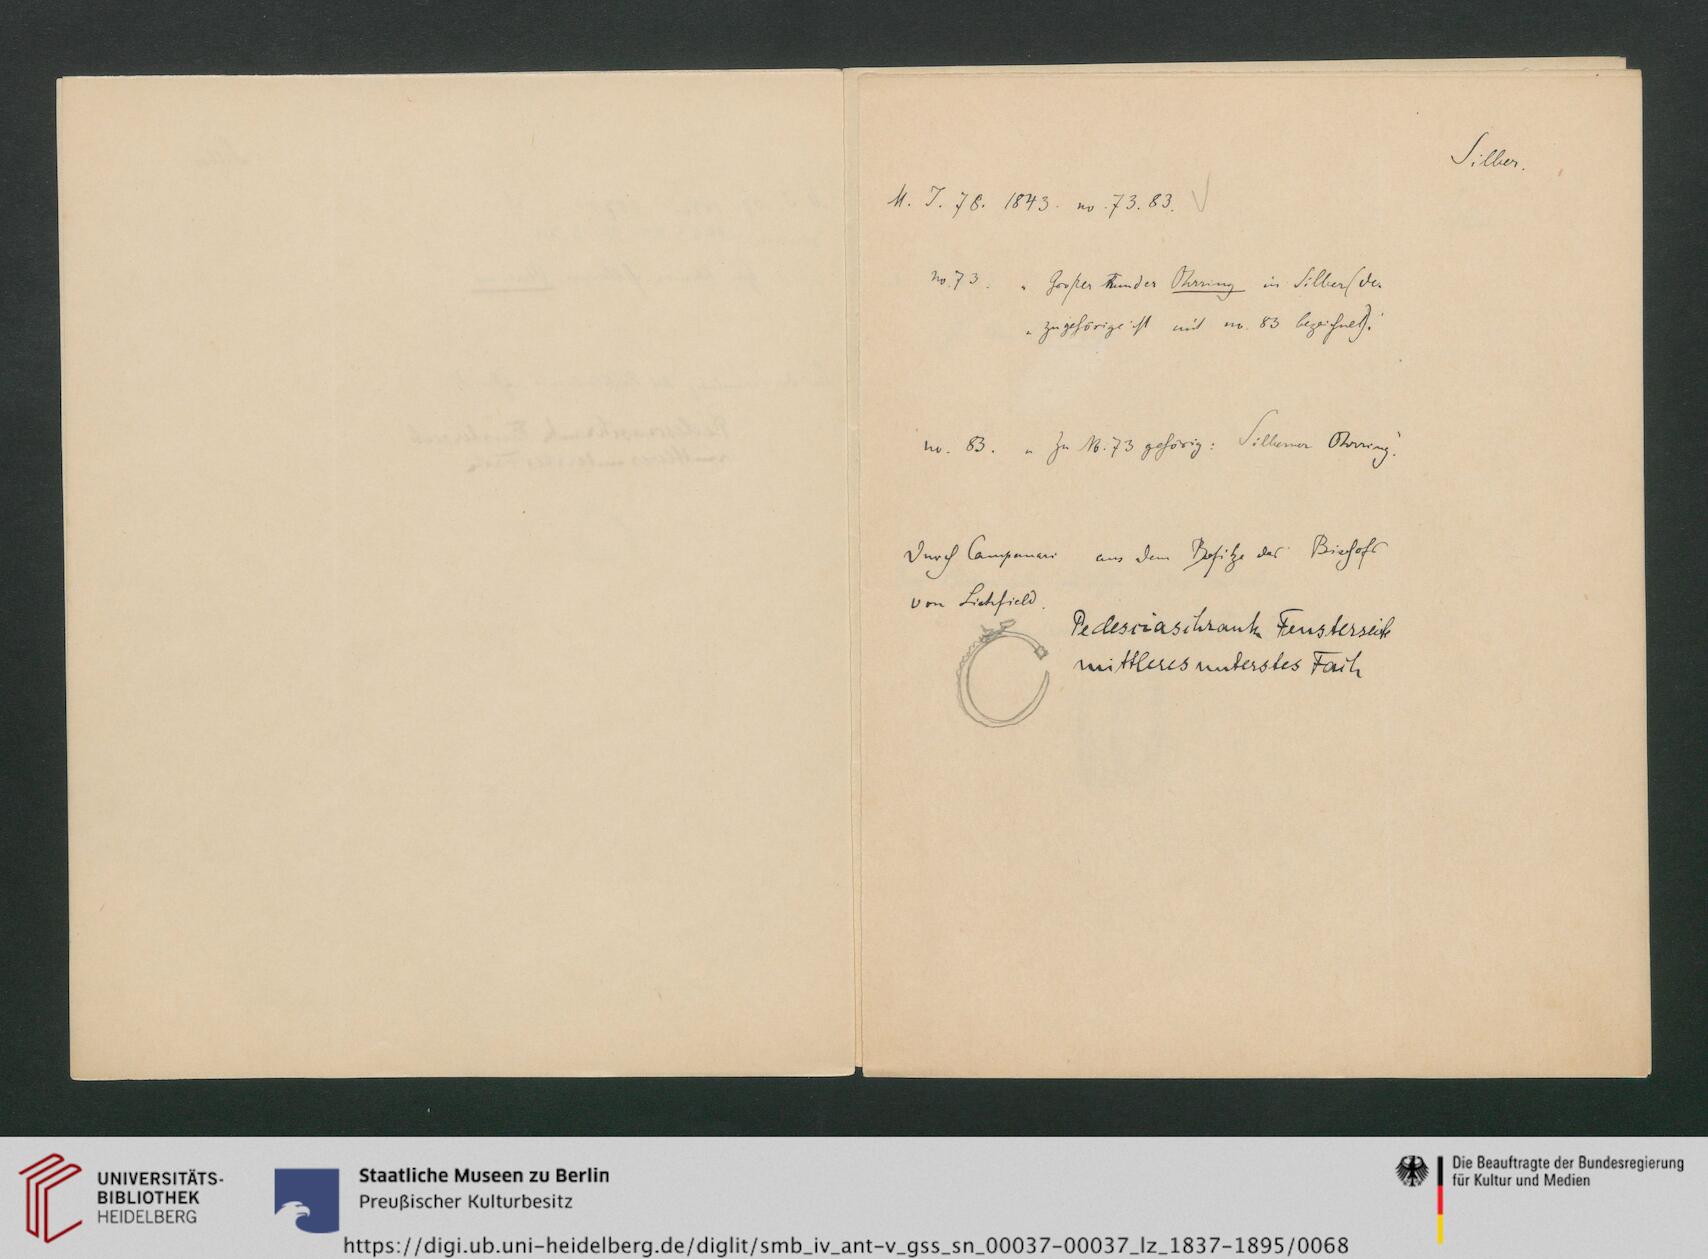 Silber.
M. I. 78. 1843. no. 73. 83.
no. 73. „ Großer runder Ohrring in Silber (der
„ zugehörige ist mit no. 83 bezeichnet).“
no. 83. „ Zu No. 73 gehörig: Silberner Ohrring“.
Durch Campanari aus dem Besitze des Bischofs
von Lichfield.
Pedesciaschrank Fensterseite
mittleres unterstes Fach
UNIVERSITÄTS-
BIBLIOTHEK
HEIDELBERG
Staatliche Museen zu Berlin
Preußischer Kulturbesitz
Die Beauftragte der Bundesregierung
für Kultur und Medien
https://digi.ub.uni-heidelberg.de/diglit/smb_iv_ant-v_gss_sn_00037-00037_lz_1837-1895/0068